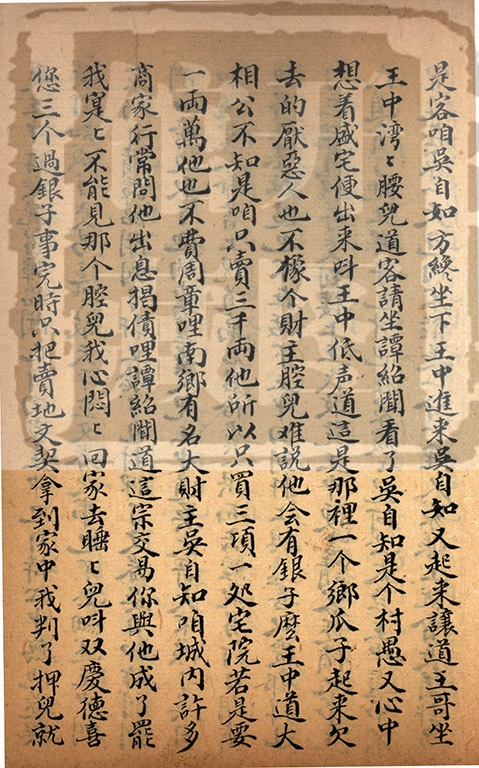 是客咱吳自如方纔坐下王中進来吳自如又起来讓道王哥坐
王中湾〻腰兒道客請坐譚紹聞看了吳自知是个村愚又心中
想着盛宅便出来呌王中低声道這是那裡一个鄉瓜子起来欠
去的厭惡人也不像个財主腔兒难説他会有銀子麽王中道大
相公不知是咱只賣三千両他所以只買三頃一処宅院若是要
一両萬他也不費周章哩南鄉有名大財主吳自知咱城内許多
商家行常問他出息揭債哩譚紹聞道這宗交易你與他成了罷
我寔〻不能見那个腔兒我心悶〻回家去睡〻兒呌双慶德喜
您三个過銀子事完時只把賣地文契拿到家中我判了押兒就